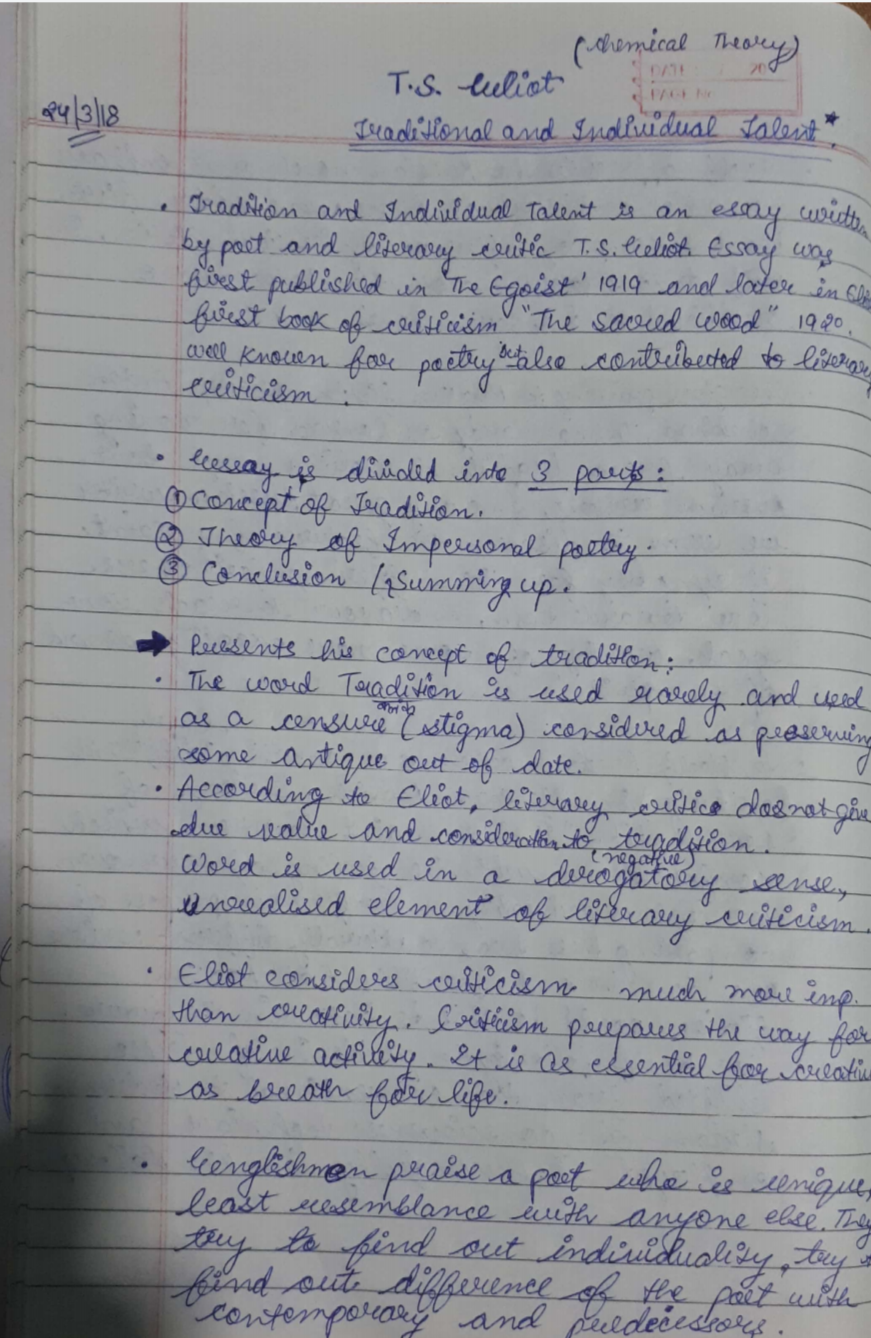 (Chemical Theory)
DATE: 20
PAGE No.
T.S. Eeliot
24/3/18
Traditional and Individual Talent*.
• Tradition and Individual Talent is an essay written
by poet and literary critic T.S. Eeliot. Essay was
first published in 'The Egoist' 1919 and later in
first book of criticism "The Sacred Wood" 1920.
well known for poetry but also contributed to literary
criticism.
• Essay is divided into 3 parts:
① Concept of Tradition.
② Theory of Impersonal poetry.
③ Conclusion / Summing up.
→ Presents his concept of tradition:
• The word Tradition is used rarely and used
as a censure (stigma) considered as preserving
some antique out of date.
• According to Eliot, literary critics doesnot give
due value and consideration to tradition.
(negative)
Word is used in a derogatory sense,
unrealised element of literary criticism.
• Eliot considers criticism much more imp.
than creativity. Criticism prepares the way for
creative activity. It is as essential for creative
as breath for life.
• Englishmen praise a poet who is unique,
least resemblance with anyone else. They
try to find out individuality, try
find out difference of the poet with
contemporary and predecessors.